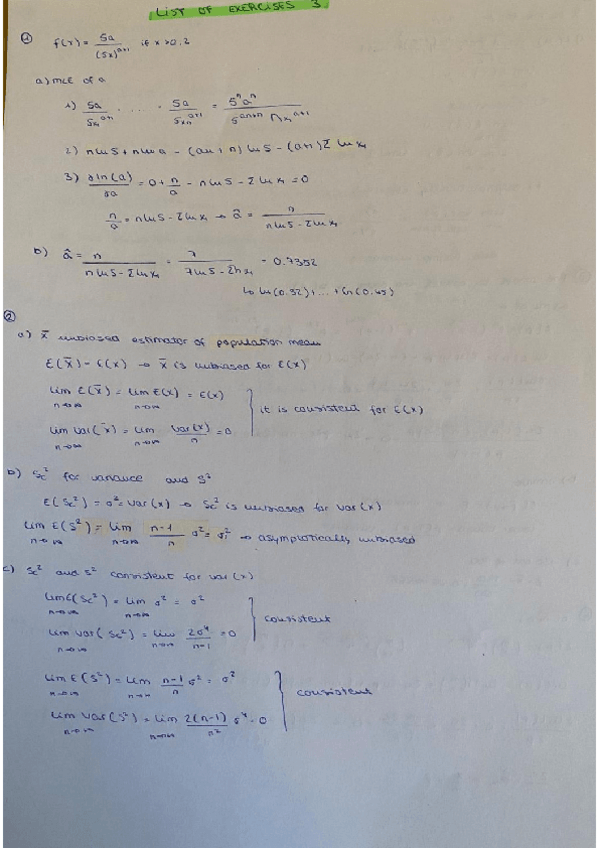 LIST OF EXERCISES 3
① f(x) = 5a / (5x)^(a+1) if x > 0.2
a) MLE of a
1) 5a / 5x₁^(a+1) · ... · 5a / 5xₙ^(a+1) = 5ⁿaⁿ / 5^(an+n) Πxᵢ^(a+1)
2) n ln 5 + n ln a - (an+n) ln 5 - (a+1) Σ ln xᵢ
3) ∂ln(a) / ∂a = 0 + n/a - n ln 5 - Σ ln xᵢ = 0
n/a = n ln 5 - Σ ln xᵢ → â = n / (n ln 5 - Σ ln xᵢ)
b) â = n / (n ln 5 - Σ ln xᵢ) = 7 / (7 ln 5 - Σ ln xᵢ) = 0.7352
↳ ln(0.32) + ... + ln(0.65)
②
a) x̄ unbiased estimator of population mean
E(x̄) = E(x) → x̄ is unbiased for E(x)
lim n→∞ E(x̄) = lim n→∞ E(x) = E(x)
it is consistent for E(x)
lim n→∞ var(x̄) = lim n→∞ var(x)/n = 0
b) Sc² for variance and S²
E(Sc²) = σ² = var(x) → Sc² is unbiased for var(x)
lim n→∞ E(S²) = lim n→∞ (n-1)/n σ² = σ² → asymptotically unbiased
c) Sc² and S² consistent for var(x)
lim n→∞ E(Sc²) = lim n→∞ σ² = σ²
consistent
lim n→∞ var(Sc²) = lim n→∞ 2σ⁴/(n-1) = 0
lim n→∞ E(S²) = lim n→∞ (n-1)/n σ² = σ²
consistent
lim n→∞ var(S²) = lim n→∞ 2(n-1)/n² σ⁴ = 0